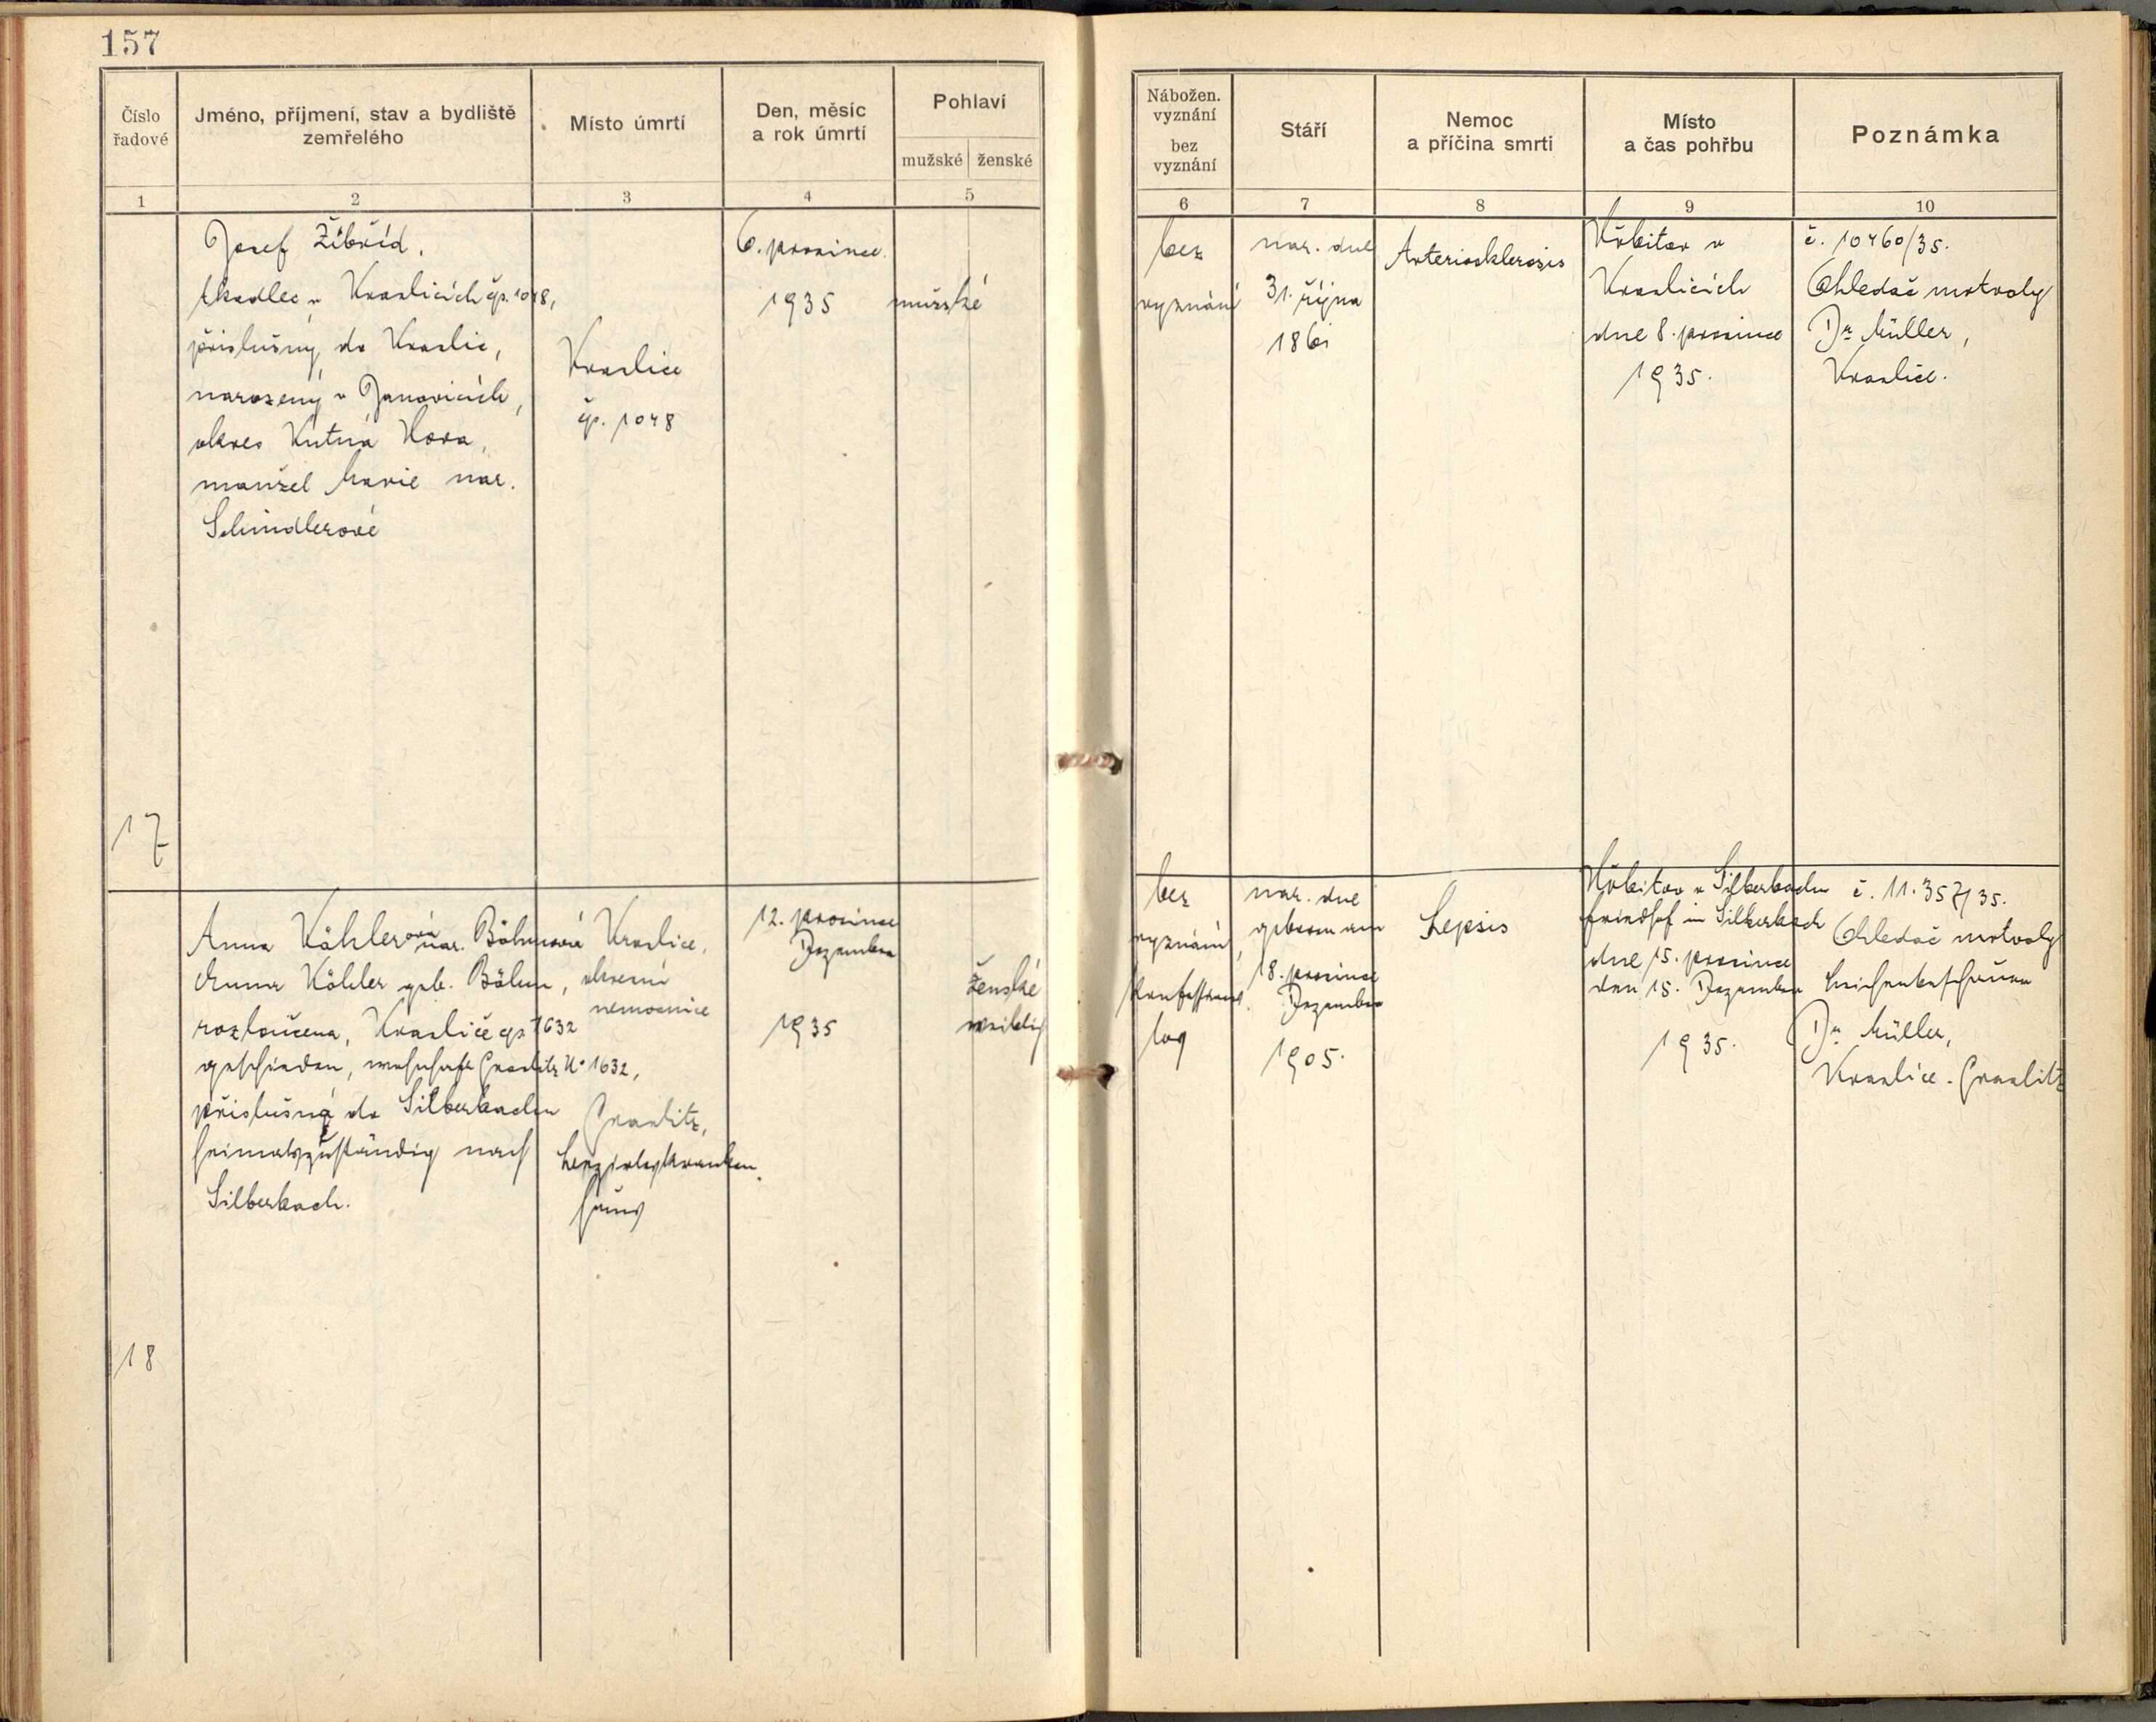 157
Číslo řadové
Jméno, příjmení, stav a bydliště zemřelého
Místo úmrtí
Den, měsíc a rok úmrtí
Pohlaví
mužské ženské
1 2 3 4 5
Josef Žibřid,
tkadlec v Kraslicích čp. 1048,
příslušný do Kraslic,
narozený v Janovicích,
okres Kutná Hora,
manžel Marie nar.
Schindlerové
Kraslice
čp. 1048
6. prosince
1935
mužské
17
Anna Köhlerová nar. Böhmová
Anna Köhler geb. Böhm,
rozloučena, Kraslice čp 1632
geschieden, wohnhaft Graslitz No 1632,
příslušná do Silberbachu
heimatzuständig nach
Silberbach.
Kraslice,
okresní
nemocnice
Graslitz,
Bezirkskranken
haus
12. prosince
Dezember
1935
ženské
weiblich
18
Nábožen. vyznání
bez vyznání
Stáří
Nemoc a příčina smrti
Místo a čas pohřbu
Poznámka
6 7 8 9 10
bez
vyznání
nar. dne
31. října
Arteriosklerosis
Hřbitov v
Kraslicích
dne 8. prosince
1935.
č. 10460/35.
Ohledač mrtvoly
Dr Müller,
Kraslice.
bez
vyznání,
konfessions
los
nar. dne
geboren am
18. prosince
Dezember
1905.
Sepsis
Hřbitov v Silberbachu
Friedhof in Silberbach
dne 15. prosince
den 15. Dezember
1935.
č. 11.357/35.
Ohledač mrtvoly
Leichenbeschauer
Dr Müller,
Kraslice - Graslitz